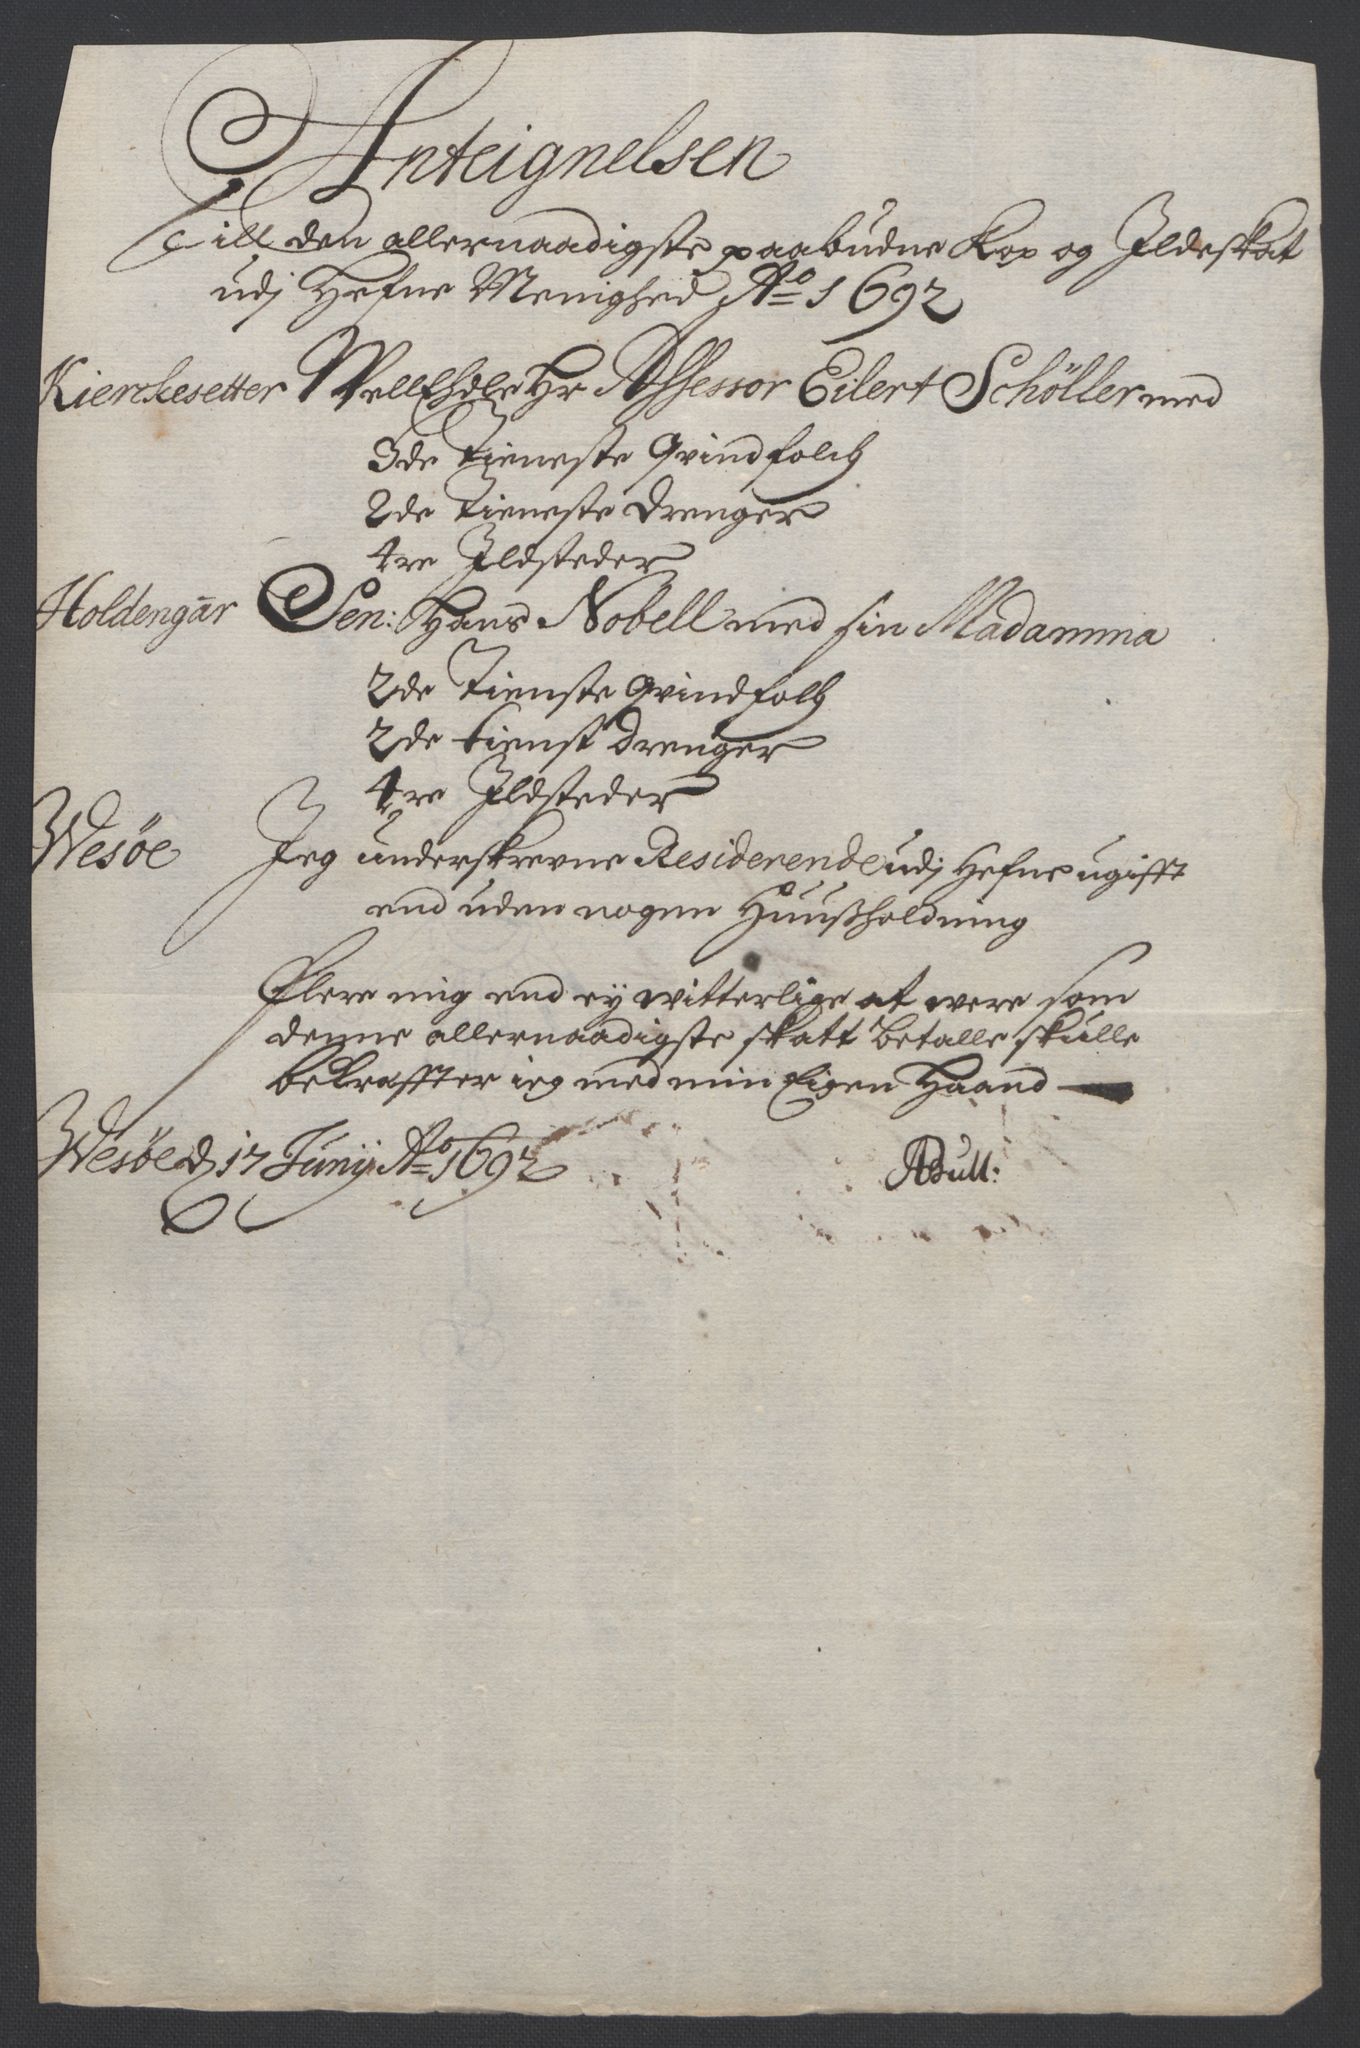 Anteignelsen
Till den allernaadigste paabudne Kop og Ildeskat
udj Hefne Menighed Ao 1692
Kierckesetter WellEhdle Hr Assessor Eilert Schöller med
3de Tieneste Qvindfolch
2de Tieneste drenger
4re Ildsteder
Holdengaar Sen: Hans Nobell med sin Madamma
2de Tienste Qvindfolch
2de tienst drenger
4re Ildsteder
Wesøe Jeg underskrevne Residerende udj Hefne ugifft
end uden nogen Huusholdning
Flere mig end ey witterlige at were som
denne allernaadigste skatt betalle skulle
bekraffter ieg med min Eigen Haand
Wesøe d 17 Junij Ao 1692 ABull: